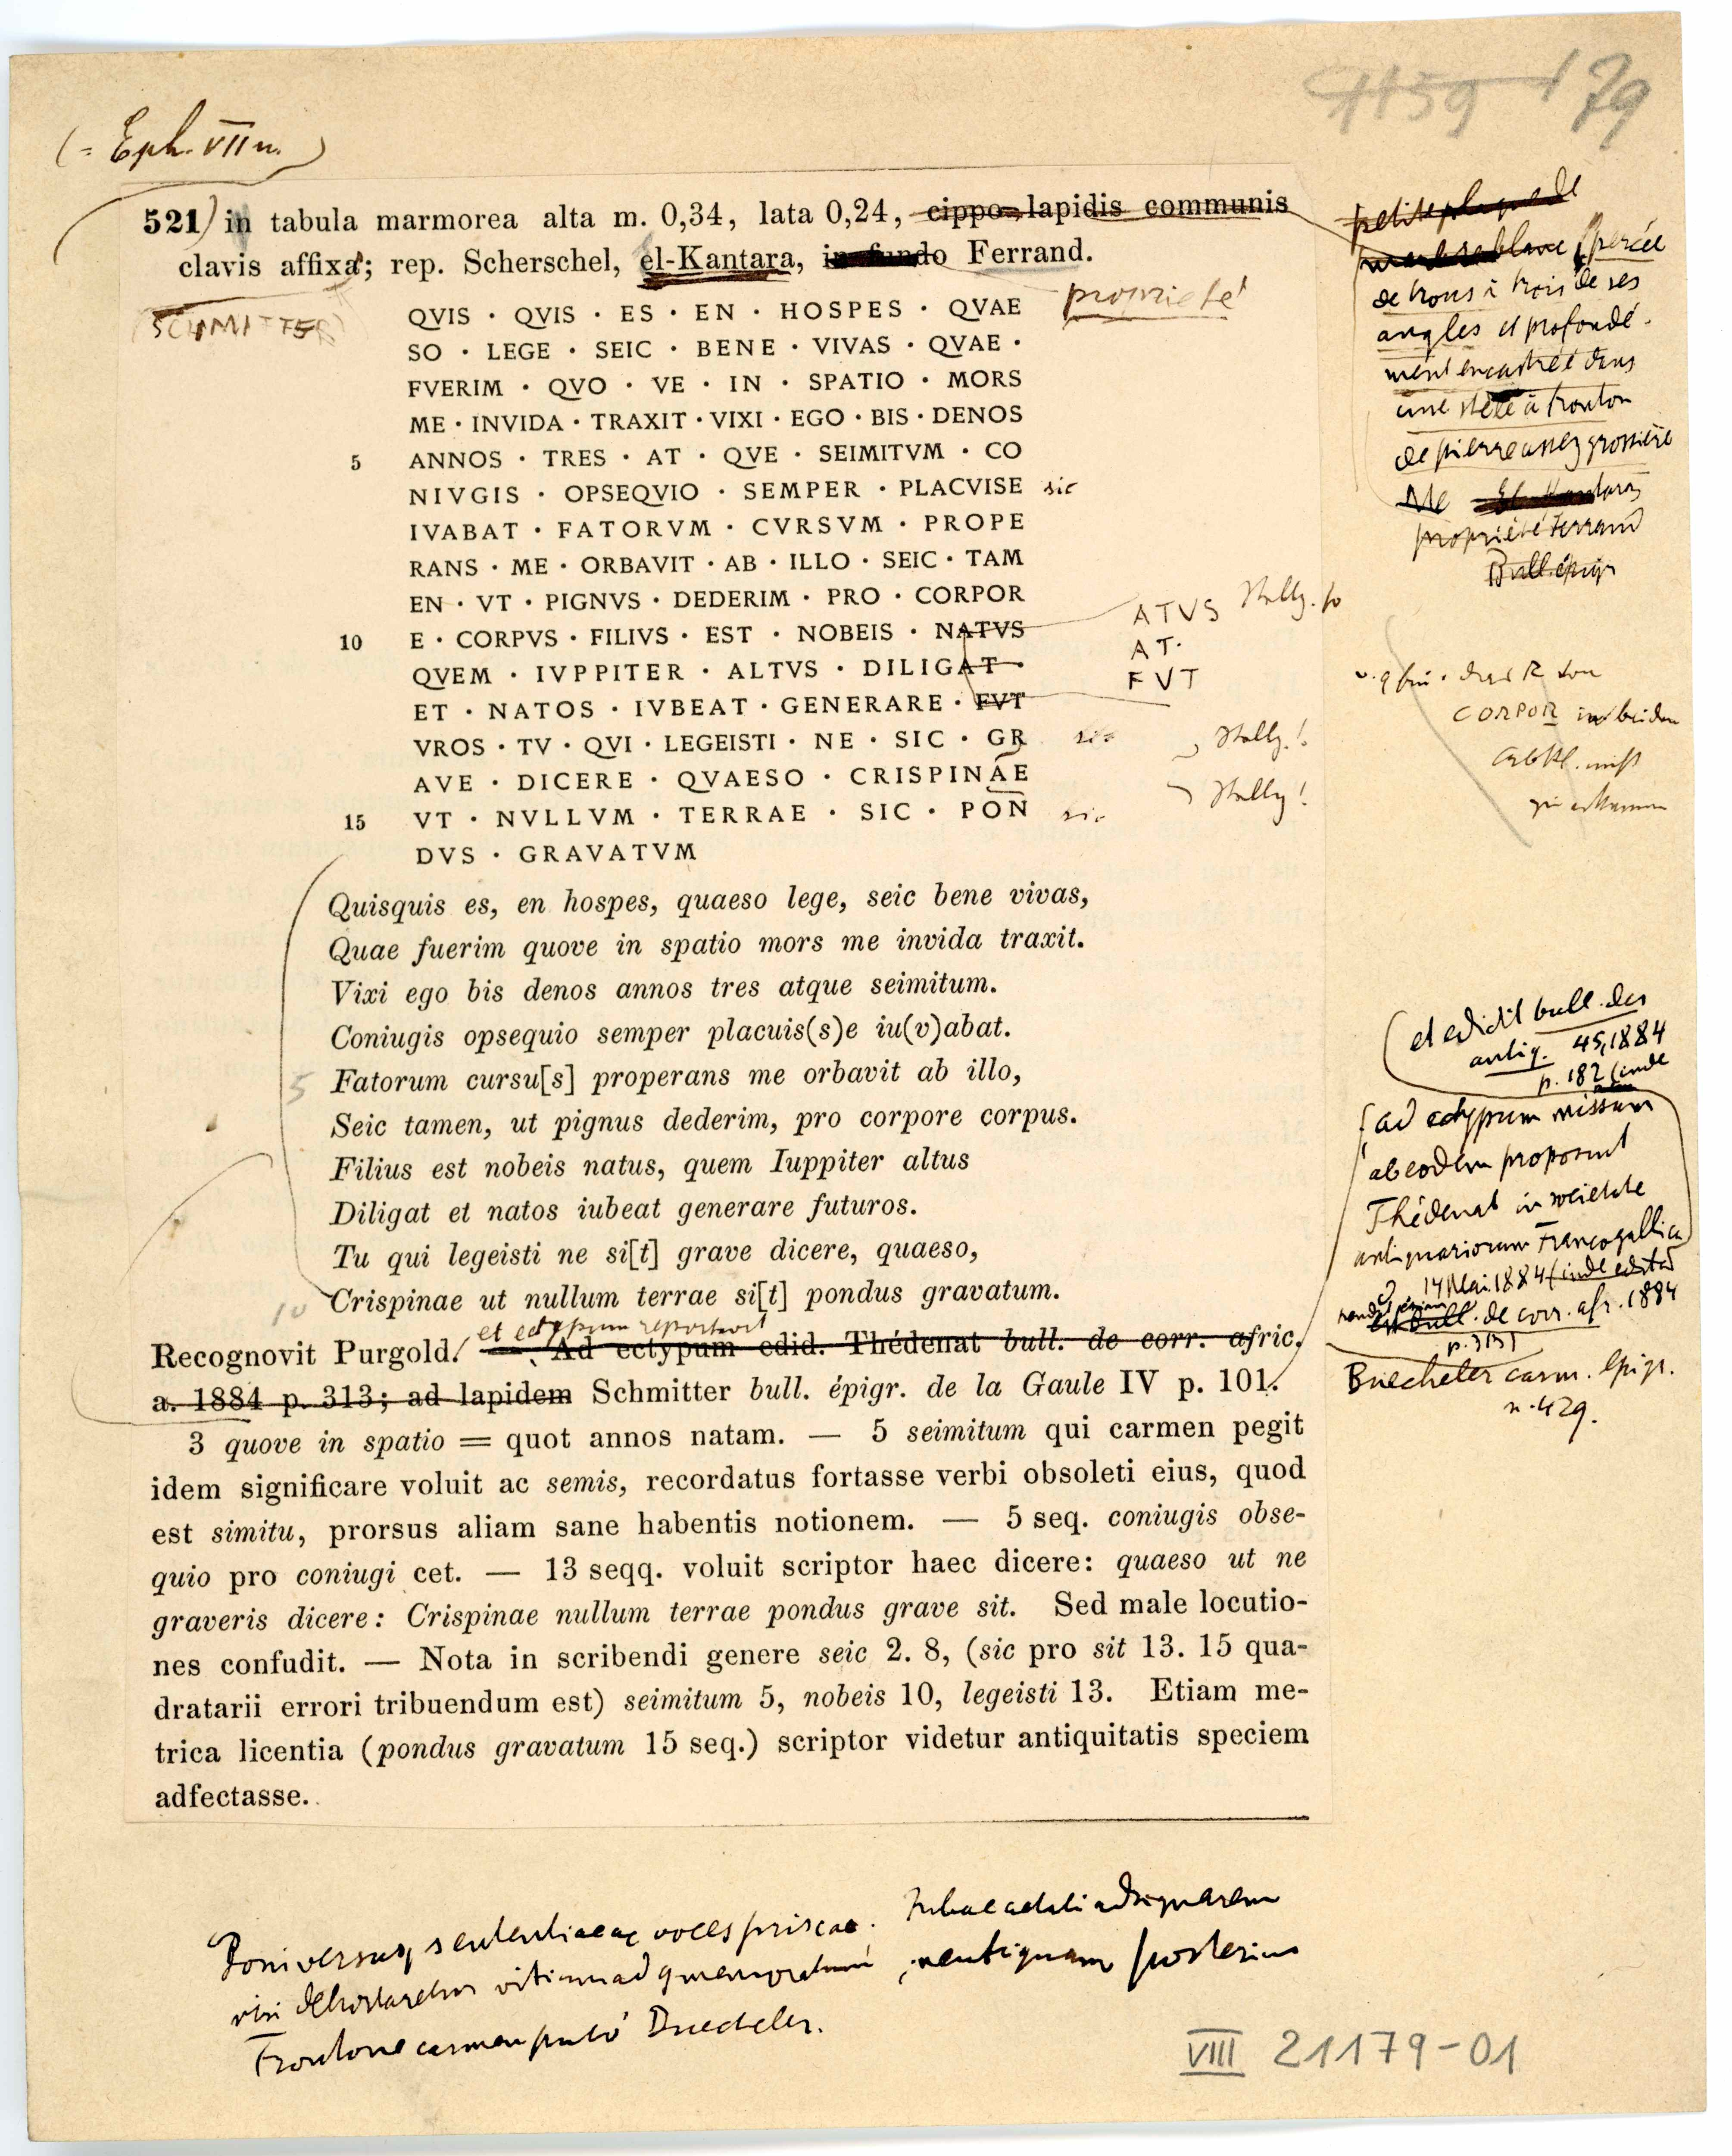 (= Eph. VII n. )
79
521) in tabula marmorea alta m. 0,34, lata 0,24, cippo lapidis communis
clavis affixa; rep. Scherschel, el-Kantara, in fundo Ferrand.
propriété
(SCHMITTER)
petite plaque de
marbre blanc (percée
de trous à trois de ses
angles et profondé-
ment encastrée dans
une stèle à fronton
de pierre assez grossière
El Kantara
propriété Ferrand
Bull. épigr
QVIS · QVIS · ES · EN · HOSPES · QVAE
SO · LEGE · SEIC · BENE · VIVAS · QVAE ·
FVERIM · QVO · VE · IN · SPATIO · MORS
ME · INVIDA · TRAXIT · VIXI · EGO · BIS · DENOS
5 ANNOS · TRES · AT · QVE · SEIMITVM · CO
NIVGIS · OPSEQVIO · SEMPER · PLACVISE sic
IVABAT · FATORVM · CVRSVM · PROPE
RANS · ME · ORBAVIT · AB · ILLO · SEIC · TAM
EN · VT · PIGNVS · DEDERIM · PRO · CORPOR
10 E · CORPVS · FILIVS · EST · NOBEIS · NATVS ATVS
QVEM · IVPPITER · ALTVS · DILIGAT · AT·
ET · NATOS · IVBEAT · GENERARE · FVT FVT
VROS · TV · QVI · LEGEISTI · NE · SIC · GR sic
AVE · DICERE · QVAESO · CRISPINAE
15 VT · NVLLVM · TERRAE · SIC · PON sic
DVS · GRAVATVM
CORPOR
Quisquis es, en hospes, quaeso lege, seic bene vivas,
Quae fuerim quove in spatio mors me invida traxit.
Vixi ego bis denos annos tres atque seimitum.
Coniugis opsequio semper placuis(s)e iu(v)abat.
5 Fatorum cursu[s] properans me orbavit ab illo,
Seic tamen, ut pignus dederim, pro corpore corpus.
Filius est nobeis natus, quem Iuppiter altus
Diligat et natos iubeat generare futuros.
Tu qui legeisti ne si[t] grave dicere, quaeso,
10 Crispinae ut nullum terrae si[t] pondus gravatum.
et edidit bull. des
antiq. 45, 1884
p. 182 (inde
ad ectypum missum
ab eodem proposuit
Thédenat in societate
antiquariorum Francogallica
14 Mai. 1884 (inde edita
Bull. de corr. afr. 1884
p. 313)
Buecheler carm. epigr.
n. 429.
et ectypum reportavit
Recognovit Purgold. Ad ectypum edid. Thédenat bull. de corr. afric.
a. 1884 p. 313; ad lapidem Schmitter bull. épigr. de la Gaule IV p. 101.
3 quove in spatio = quot annos natam. — 5 seimitum qui carmen pegit
idem significare voluit ac semis, recordatus fortasse verbi obsoleti eius, quod
est simitu, prorsus aliam sane habentis notionem. — 5 seq. coniugis obse-
quio pro coniugi cet. — 13 seqq. voluit scriptor haec dicere: quaeso ut ne
graveris dicere: Crispinae nullum terrae pondus grave sit. Sed male locutio-
nes confudit. — Nota in scribendi genere seic 2. 8, (sic pro sit 13. 15 qua-
dratarii errori tribuendum est) seimitum 5, nobeis 10, legeisti 13. Etiam me-
trica licentia (pondus gravatum 15 seq.) scriptor videtur antiquitatis speciem
adfectasse.
Boni versus, sententiae ac voces priscae.
nisi dehortaretur vitium ad
Frontone carmen puto Buecheler.
VIII 21179-01